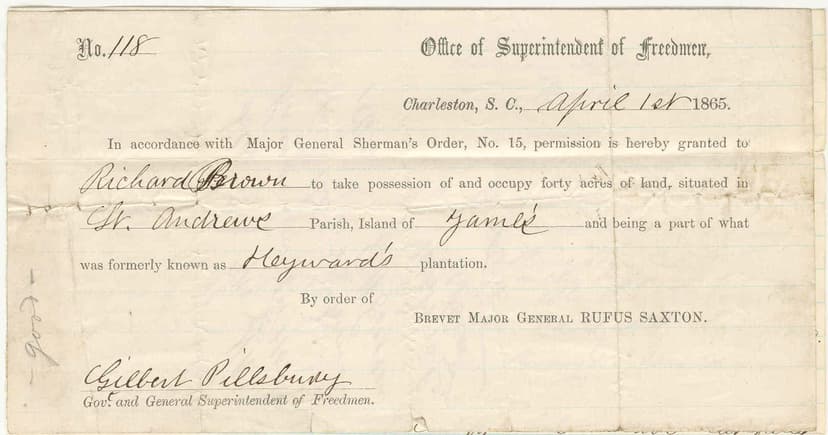 No. 118
Office of Superintendent of Freedmen,
Charleston, S. C., April 1st 1865.
In accordance with Major General Sherman's Order, No. 15, permission is hereby granted to
Richard Brown to take possession of and occupy forty acres of land, situated in
St. Andrews Parish, Island of James and being a part of what
was formerly known as Heyward's plantation.
By order of
Brevet Major General RUFUS SAXTON.
Gilbert Pillsbury
Gov't and General Superintendent of Freedmen.
- good -